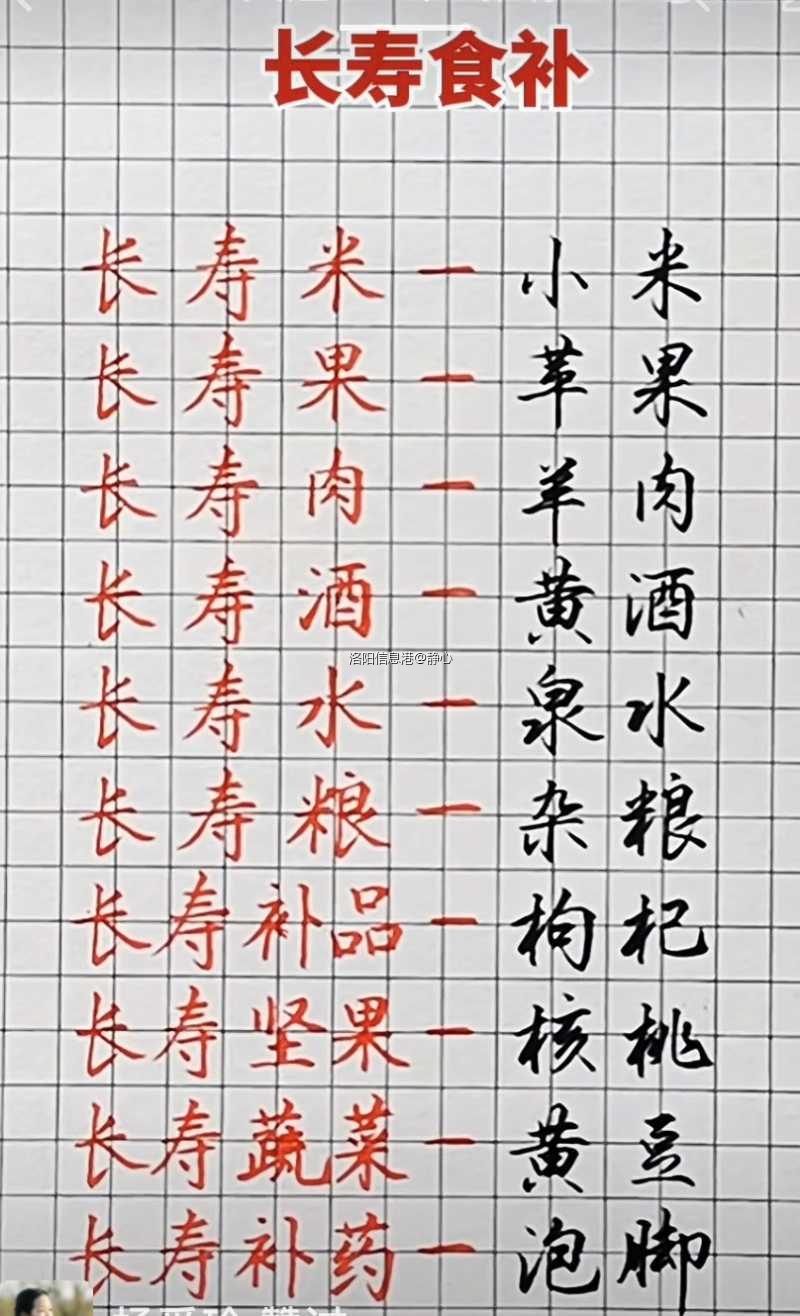 长寿食补
长寿米一小米
长寿果一苹果
长寿肉一羊肉
长寿酒一黄酒
洛阳信息港@静心
长寿水一泉水
长寿粮一杂粮
长寿补品一枸杞
长寿坚果一核桃
长寿蔬菜一黄豆
长寿补药一泡脚